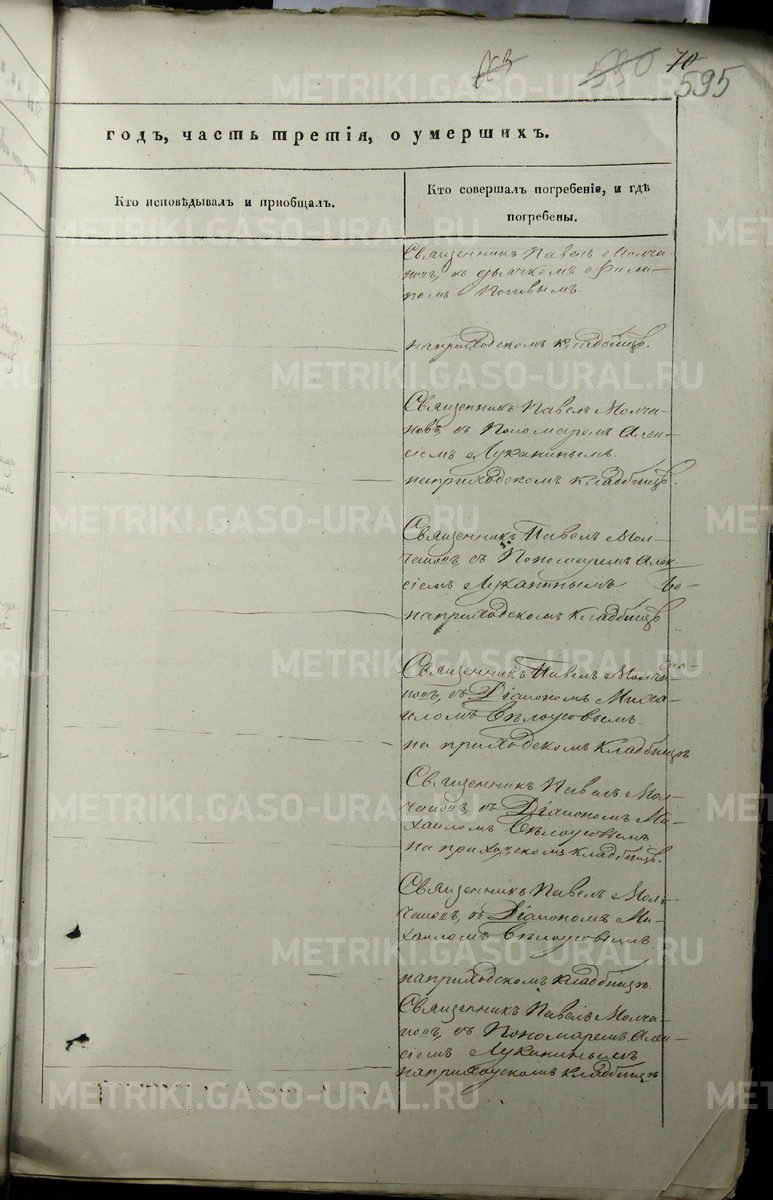 590 70
595
годъ, часть третія, о умершихъ.
Кто исповѣдывалъ и пріобщалъ.
Кто совершалъ погребеніе, и гдѣ
погребены.
Священникъ Павелъ Молча-
новъ, съ дьячкомъ Фили-
помъ Поповымъ.
на приходскомъ кладбищѣ.
Священникъ Павелъ Молча-
новъ, съ Пономаремъ Алек-
сіемъ Луканинымъ.
на приходскомъ кладбищѣ.
Священникъ Павелъ Мол-
чановъ, съ Пономаремъ Алек-
сіемъ Луканинымъ
на приходскомъ кладбищѣ
Священникъ Павелъ Молча-
новъ, съ Діакономъ Миха-
иломъ Бѣлоусовымъ.
на приходскомъ кладбищѣ
Священникъ Павелъ Мол-
чановъ, съ Діакономъ Ми-
хаиломъ Бѣлоусовымъ
на приходскомъ кладбищѣ.
Священникъ Павелъ Мол-
чановъ, съ Діакономъ Ми-
хаиломъ Бѣлоусовымъ.
на приходскомъ кладбищѣ.
Священникъ Павелъ Молча-
новъ, съ Пономаремъ Алек-
сіемъ Луканинымъ
на приходскомъ кладбищѣ
METRIKI.GASO-URAL.RU